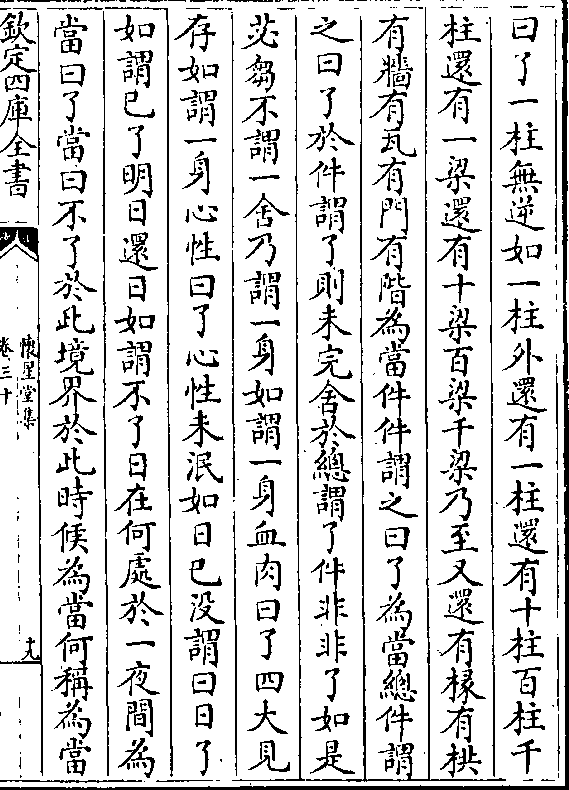 曰了一柱無逆如一柱外還有一柱還有十柱百柱千
柱還有一梁還有十梁百梁千梁乃至又還有椽有栱
有牆有瓦有門有階為當件件謂之曰了為當總件謂
之曰了於件謂了則未完舍於總謂了件非非了如是
苾芻不謂一舍乃謂一身如謂一身血肉曰了四大見
存如謂一身心性曰了心性未泯如日已没謂曰日了
如謂已了明日還日如謂不了日在何處於一夜間為
當曰了當曰不了於此境界於此時候為當何稱為當
欽定四庫全書
懷星堂集
卷三十
十九